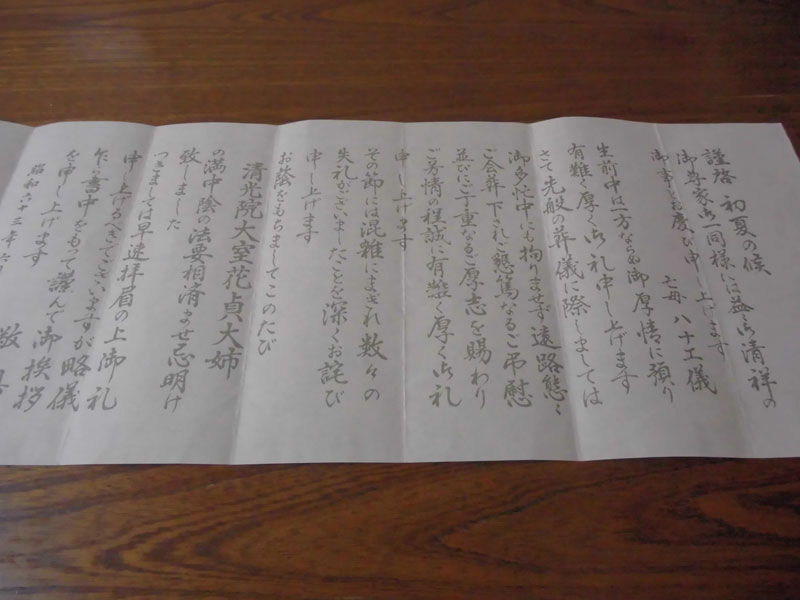 謹啓 初夏の候
御尊家御一同様には益々御清祥の
御事とお慶び申し上げます
亡母 八十工儀
生前中は一方ならぬ御厚情に預り
有難く厚く御礼申し上げます
さて先般の葬儀に際しましては
御多忙中にも拘りませず遠路態々
ご会葬下され懇篤なるご弔慰
並びにご丁重なるご厚志を賜わり
ご芳情の程誠に有難く厚く御礼
申し上げます
その節には混雑にまぎれ数々の
失礼がございましたことを深くお詫び
申し上げます
お蔭をもちましてこのたび
清光院大室花貞大姉
の満中陰の法要相済ませ忌明け
致しました
つきましては早速拝眉の上御礼
申し上げるべきでございますが略儀
乍ら書中をもって謹んで御挨拶
を申し上げます
敬具
昭和六十三年六月